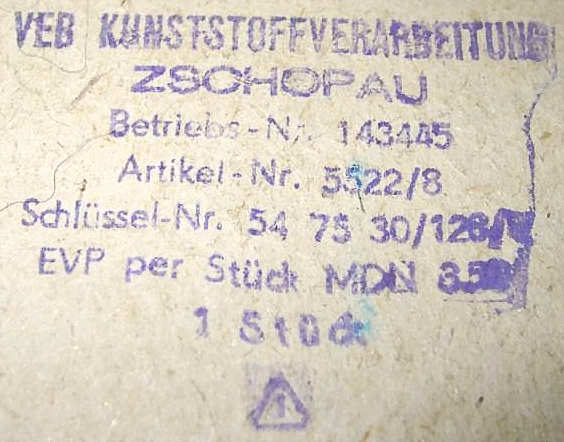 VEB KUNSTSTOFFVERARBEITUNG
ZSCHOPAU
Betriebs-Nr. 143445
Artikel-Nr. 5522/8
Schlüssel-Nr. 54 75 30/128/
EVP per Stück MDN
1 Stück
1